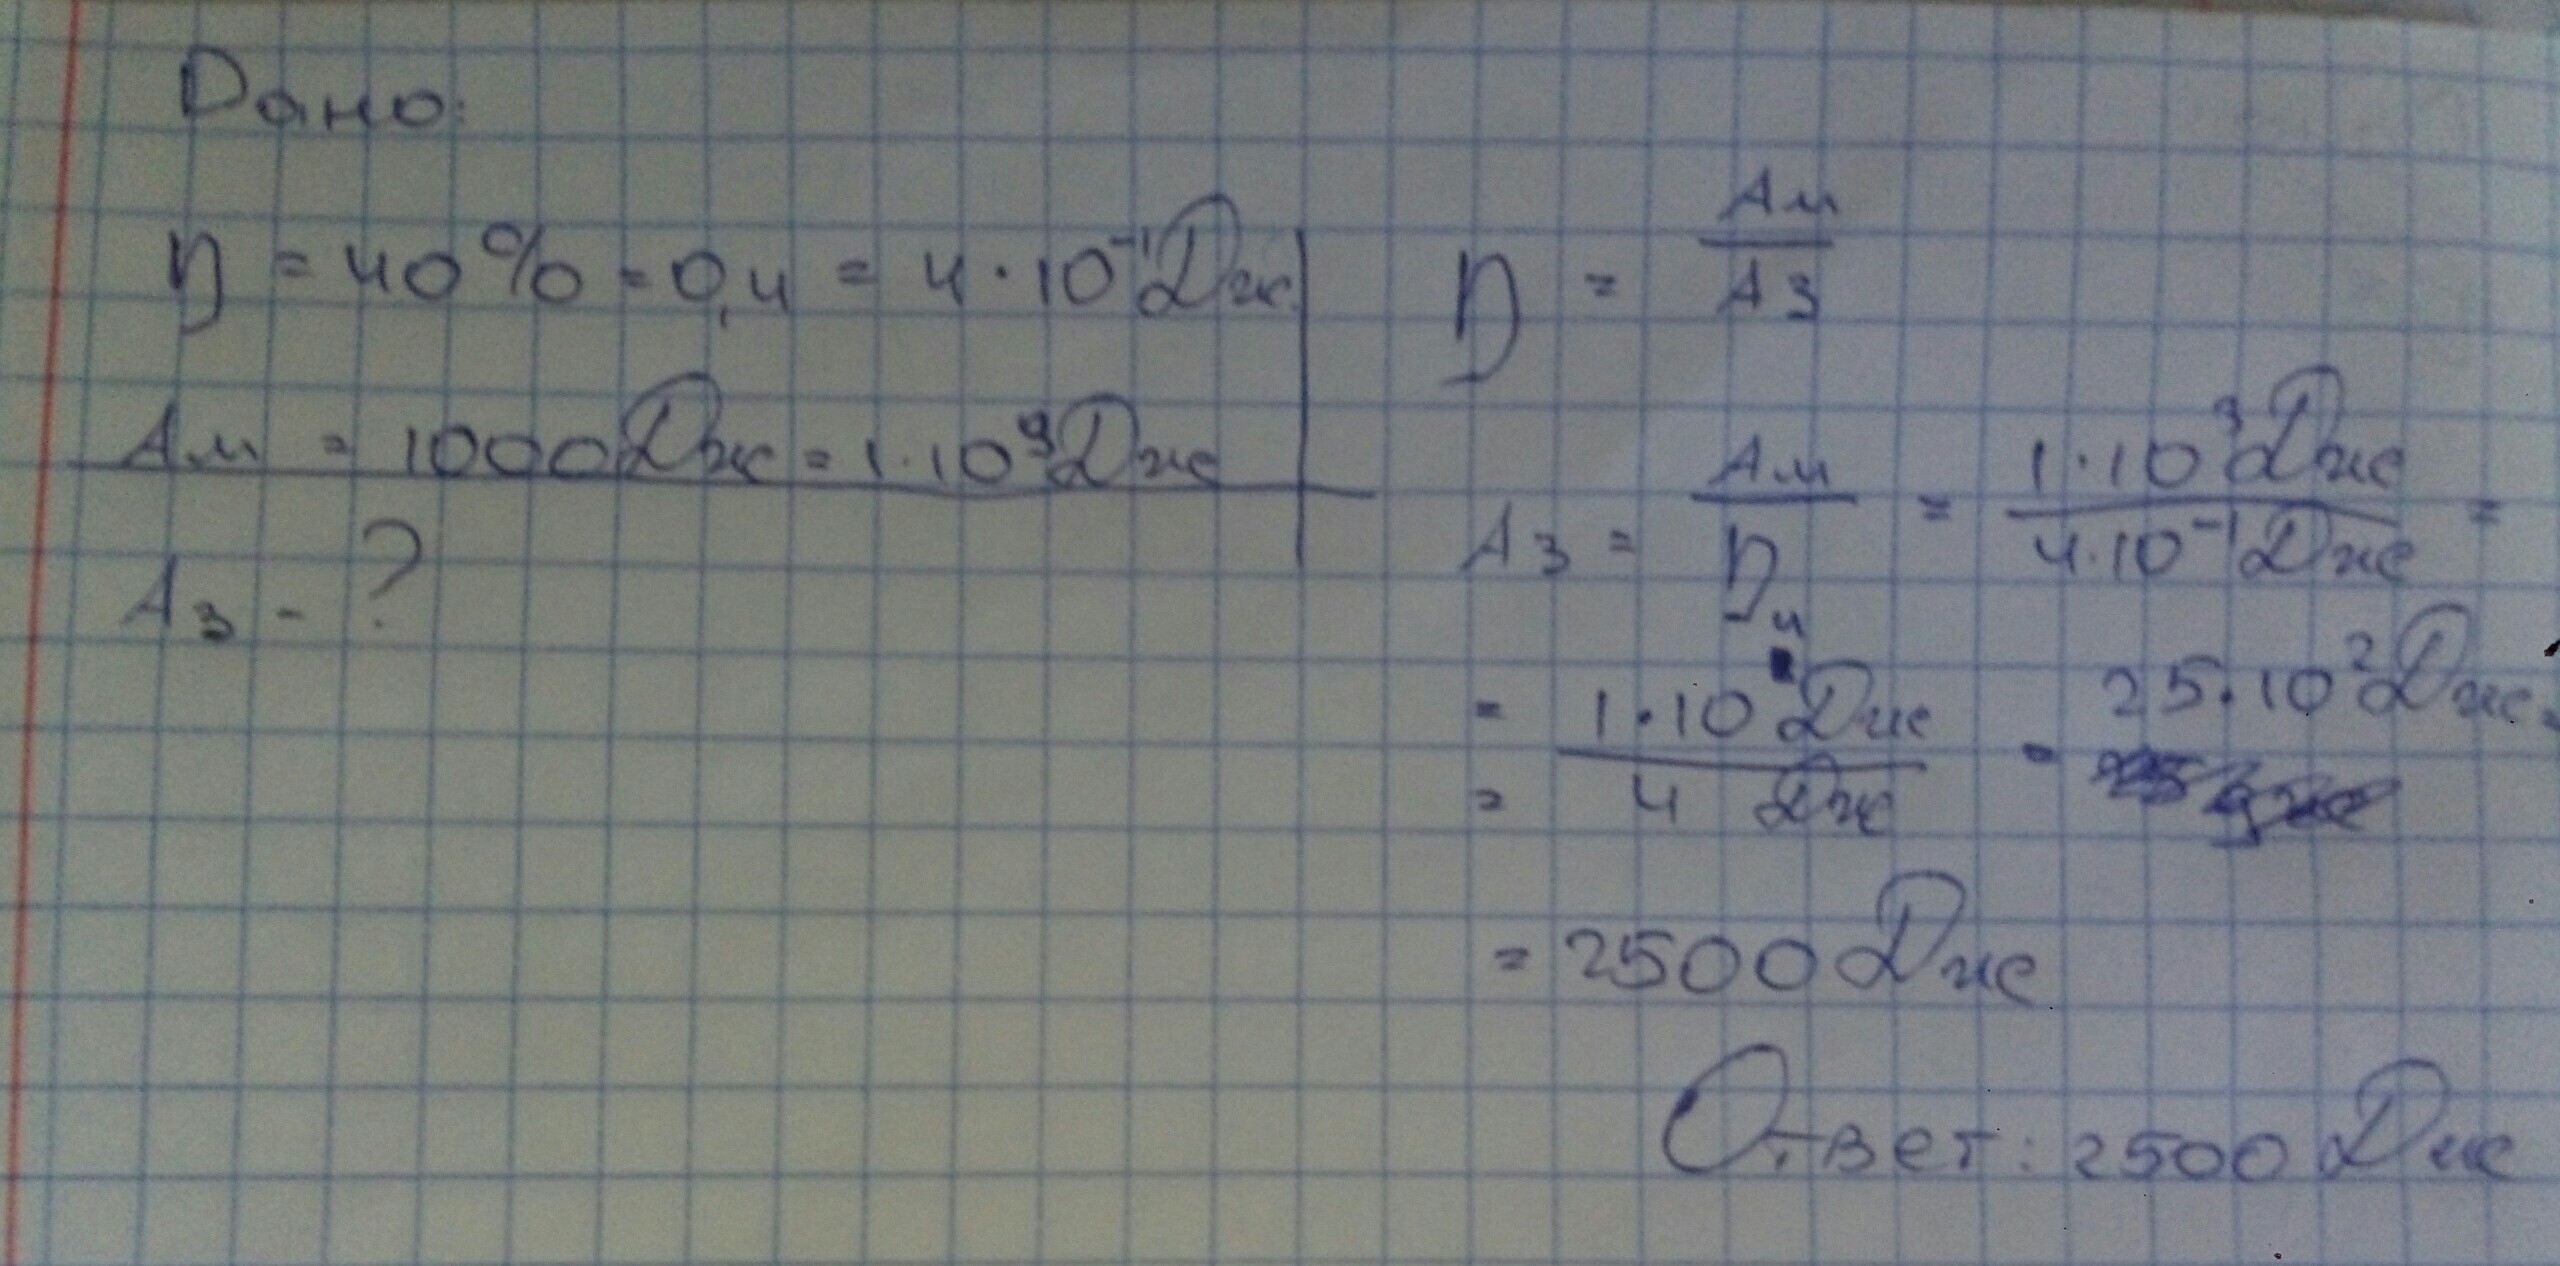 Дано:
η = 40% = 0,4 = 4·10⁻¹Дж
Ам = 1000Дж = 1·10³Дж
Аз - ?
η = Ам / Аз
Аз = Ам / η = 1·10³Дж / 4·10⁻¹Дж =
= 1·10⁴Дж / 4 Дж = 25·10²Дж =
= 2500Дж
Ответ: 2500 Дж